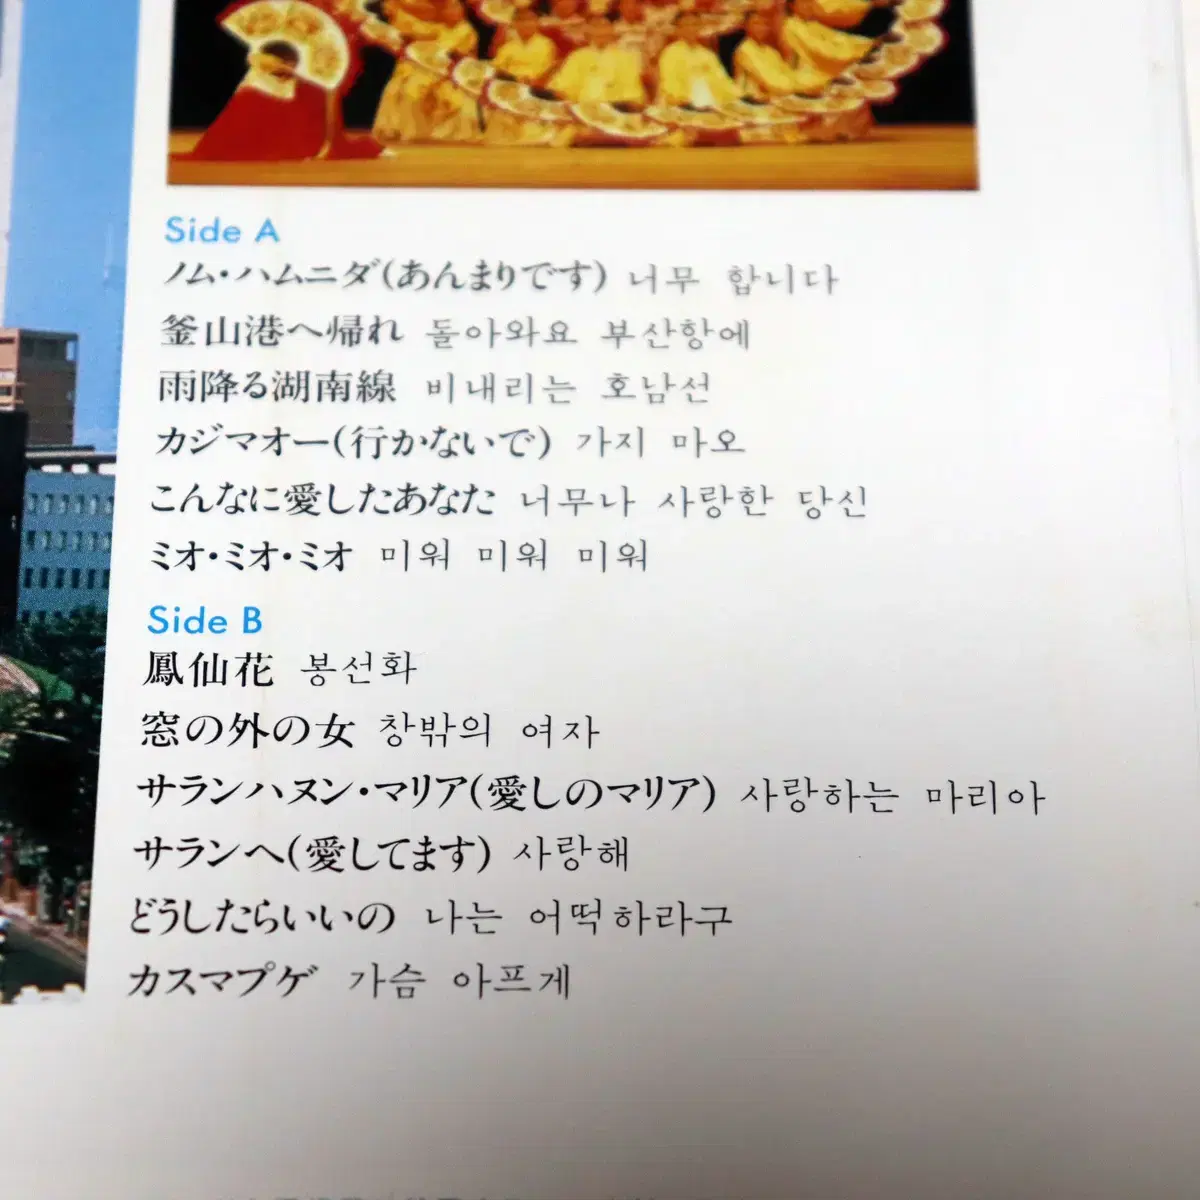 Side A
ノム・ハムニダ(あんまりです) 너무 합니다
釜山港へ帰れ 돌아와요 부산항에
雨降る湖南線 비내리는 호남선
カジマオー(行かないで) 가지 마오
こんなに愛したあなた 너무나 사랑한 당신
ミオ・ミオ・ミオ 미워 미워 미워
Side B
鳳仙花 봉선화
窓の外の女 창밖의 여자
サランハヌン・マリア(愛しのマリア) 사랑하는 마리아
サランヘ(愛してます) 사랑해
どうしたらいいの 나는 어떡하라구
カスマプゲ 가슴 아프게